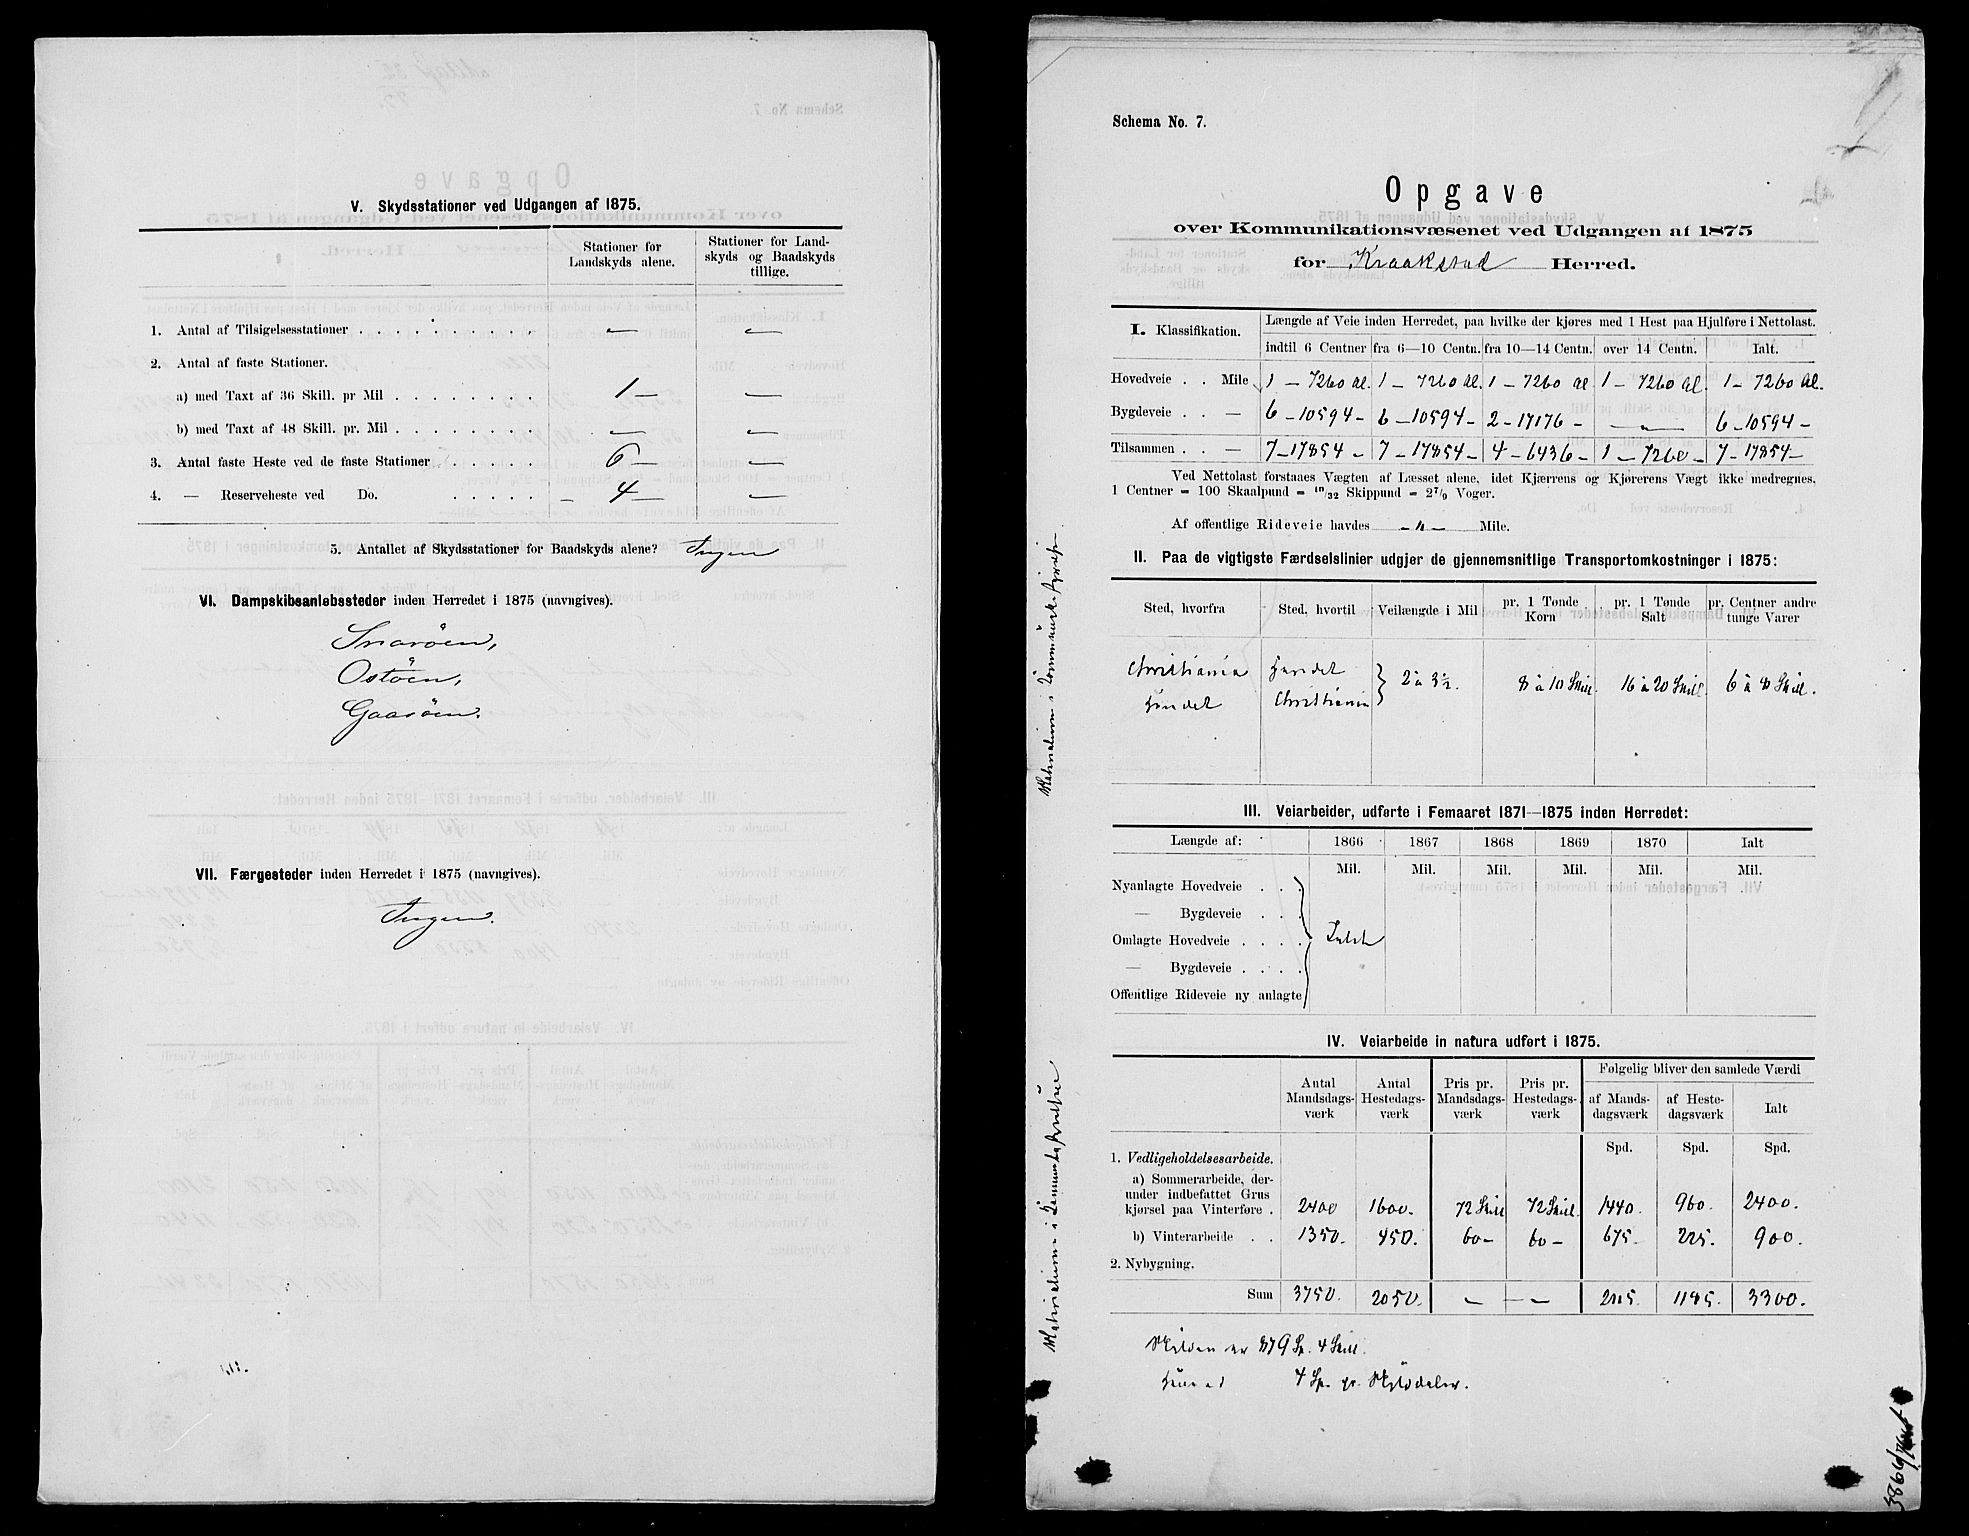 V. Skydsstationer ved Udgangen af 1875.
Stationer for Landskyds alene.
Stationer for Land-skyds og Baadskyds tillige.
1. Antal af Tilsigelsesstationer . . . . . . . . . . — —
2. Antal af faste Stationer.
a) med Taxt af 36 Skill. pr Mil . . . . . . . . 1 — —
b) med Taxt af 48 Skill. pr. Mil . . . . . . . . — —
3. Antal faste Heste ved de faste Stationer . . . . . . 6 — —
4. — Reserveheste ved Do. . . . . . . – 4 — —
5. Antallet af Skydsstationer for Baadskyds alene? Ingen
VI. Dampskibsanløbssteder inden Herredet i 1875 (navngives).
Snarøen,
Ostøen,
Gaasøen.
VII. Færgesteder inden Herredet i 1875 (navngives).
Ingen.
Schema No. 7.
Opgave
over Kommunikationsvæsenet ved Udgangen af 1875
for Kraakstad Herred.
I. Klassifikation. Længde af Veie inden Herredet, paa hvilke der kjøres med 1 Hest paa Hjulføre i Nettolast.
indtil 6 Centner fra 6—10 Centn. fra 10—14 Centn. over 14 Centn. Ialt.
Hovedveie . . Mile 1 – 7260 Al. 1 – 7260 Al. 1 – 7260 Al. 1 – 7260 Al. 1 – 7260 Al.
Bygdeveie . . — 6 – 10594 – 6 – 10594 – 2 – 17176 – – „ – 6 – 10594 –
Tilsammen . . — 7 – 17854 – 7 – 17854 – 4 – 6436 – 1 – 7260 – 7 – 17854 –
Ved Nettolast forstaaes Vægten af Læsset alene, idet Kjærrens og Kjørerens Vægt ikke medregnes.
1 Centner = 100 Skaalpund = 10/32 Skippund = 2 7/9 Voger.
Af offentlige Rideveie havdes – „ – Mile.
II. Paa de vigtigste Færdselslinier udgjør de gjennemsnitlige Transportomkostninger i 1875:
Sted, hvorfra Sted, hvortil Veilængde i Mil pr. 1 Tønde Korn pr. 1 Tønde Salt pr. Centner andre tunge Varer
Christiania Herredet
Herredet Christiania } 2 à 3½. 8 à 10 Skill. 16 à 20 Skill. 6 à 8 Skill.
III. Veiarbeider, udførte i Femaaret 1871—1875 inden Herredet:
Længde af: 1866 1867 1868 1869 1870 Ialt
Mil. Mil. Mil. Mil. Mil. Mil.
Nyanlagte Hovedveie . . .
— Bygdeveie . . .
Omlagte Hovedveie . . . . Intet
— Bygdeveie . . . .
Offentlige Rideveie ny anlagte
IV. Veiarbeide in natura udført i 1875.
Antal Mandsdags-værk Antal Hestedags-værk Pris pr. Mandsdags-værk Pris pr. Hestedags-værk Følgelig bliver den samlede Værdi
af Mands-dagsværk af Heste-dagsværk Ialt
Spd. Spd. Spd.
1. Vedligeholdelsesarbeide.
a) Sommerarbeide, der-
under indbefattet Grus
kjørsel paa Vinterføre . 2400 1600. 72 Skill 72 Skill. 1440. 960. 2400.
b) Vinterarbeide . . 1350. 450. 60 – 60 – 675 – 225. 900.
2. Nybygning.
Sum 3750. 2050. – – – 2115. 1185. 3300.
4 Skill.
4 Sp. pr.